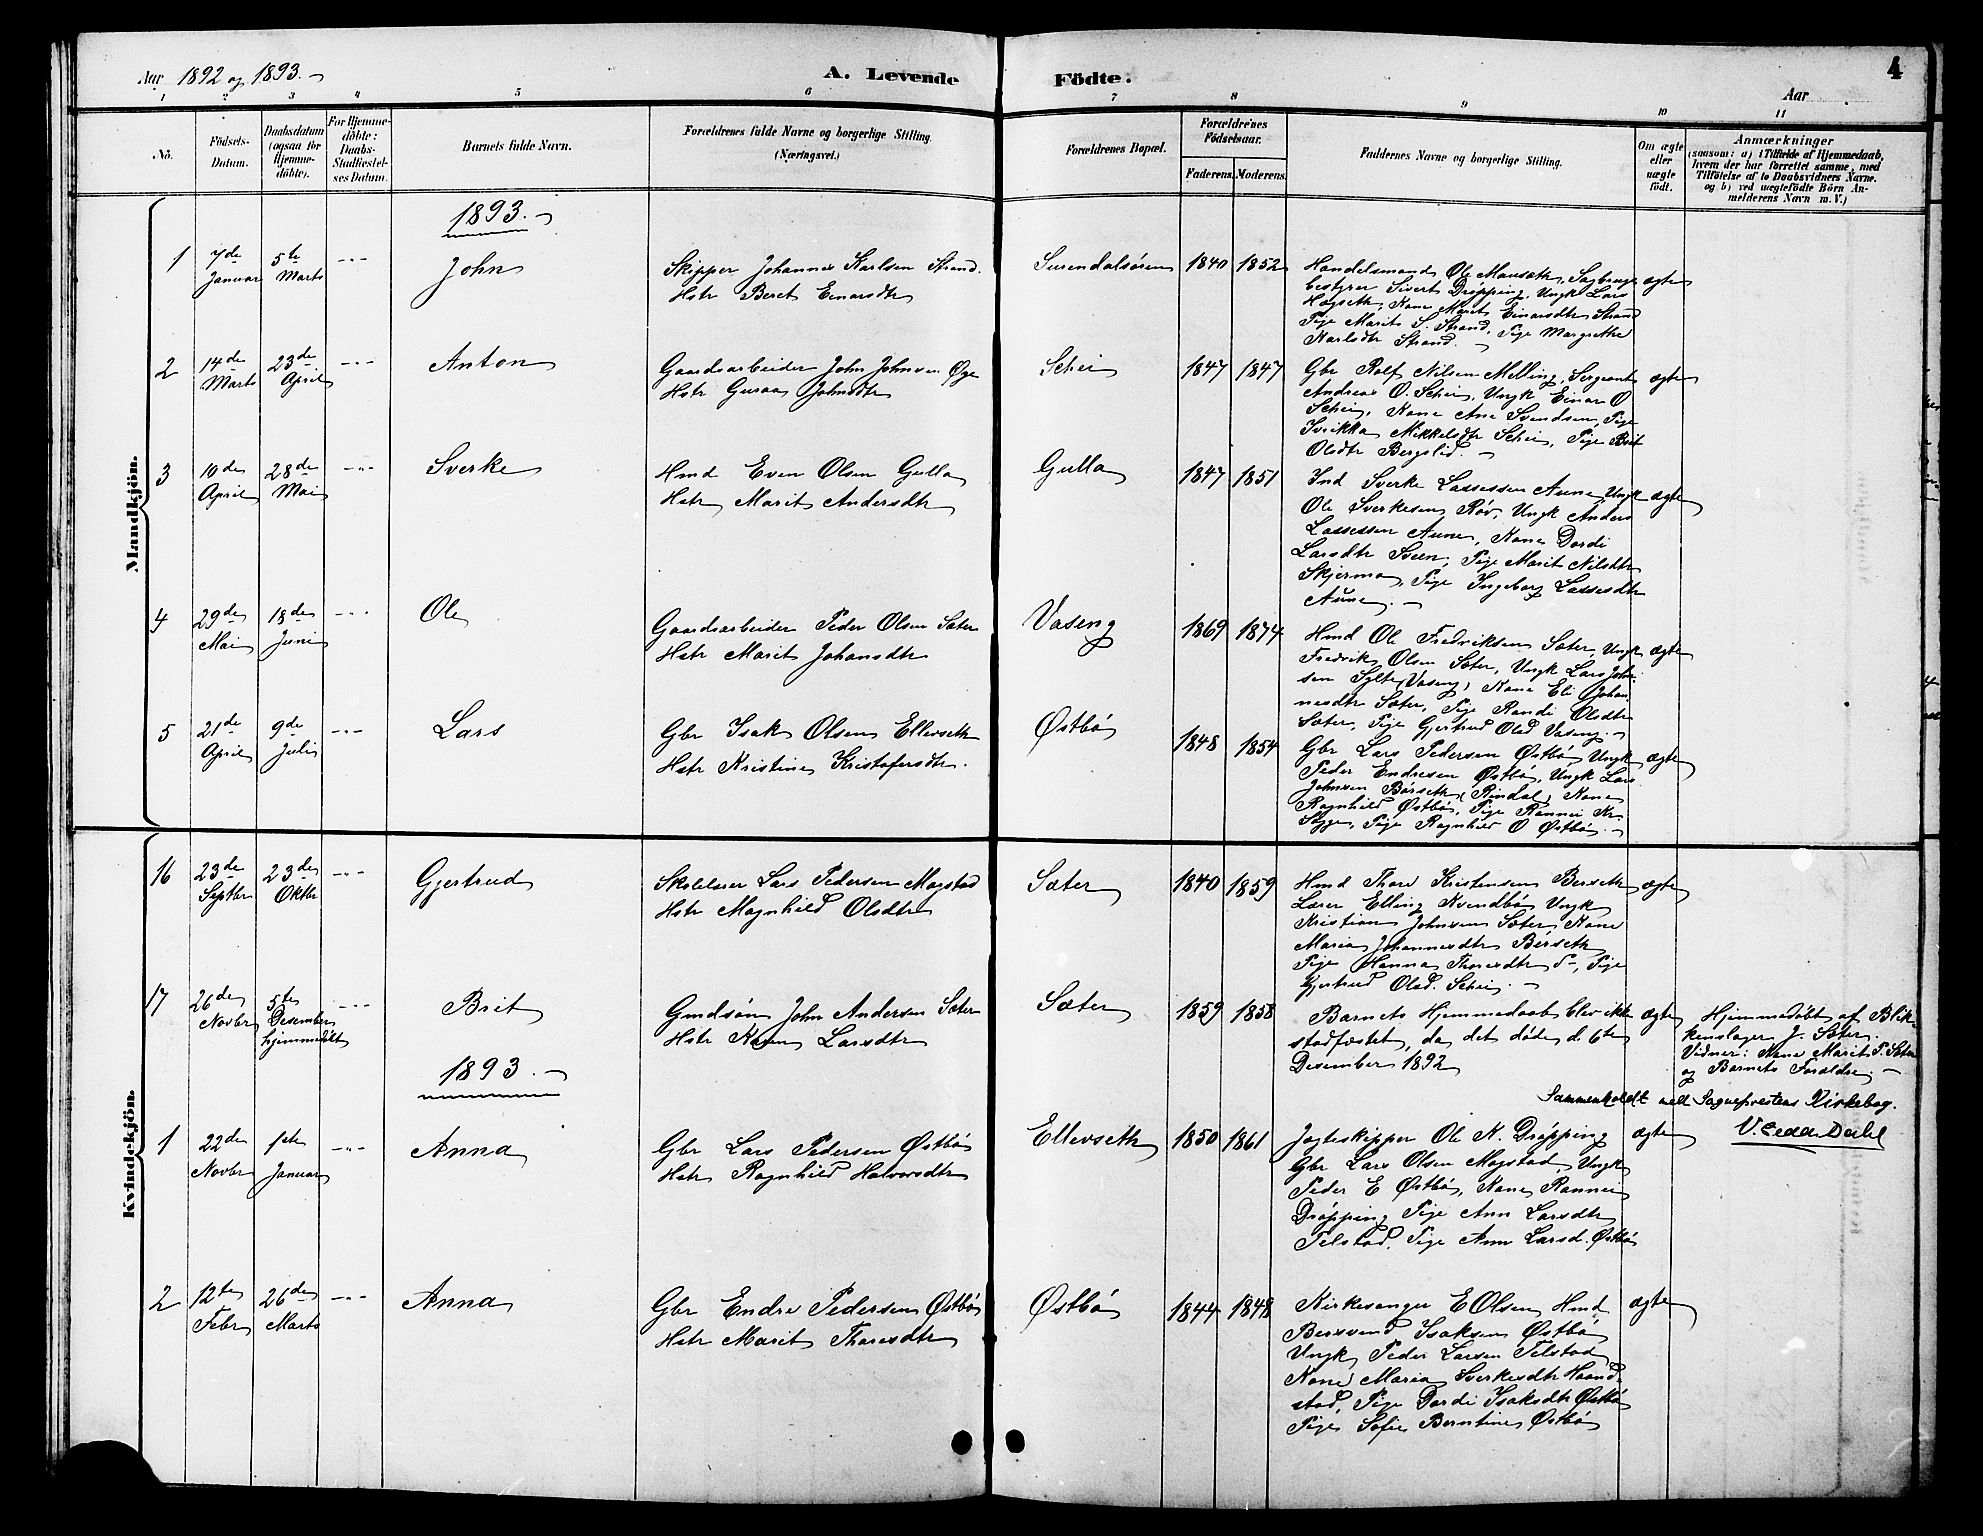 Aar 1892 og 1893.
A. Levende Födte.
4
Aar
1 2 3 4 5 6 7 8 9 10 11
No.
Födsels-
Datum.
Daabsdatum
(ogsaa for
Hjemme-
döbte).
For Hjemme-
döbte:
Daabs-
Stadfæstel-
ses Datum.
Barnets fulde Navn.
Forældrenes fulde Navne og borgerlige Stilling.
(Næringsvei.)
Forældrenes Bopæl.
Forældrenes
Födselsaar.
Faderens. Moderens.
Faddernes Navne og borgerlige Stilling.
Om ægte
eller
uægte
födt.
Anmærkninger
(saasom: a) i Tilfælde af Hjemmedaab,
hvem der har forrettet samme, med
Tilföielse af to Daabsvidners Navne.
og b) ved uægtefödte Börn An-
melderens Navn m. V.)
Mandkjön.
1893.
1
7de Januar
5te Marts
John
Skipper Johannes Karlsen Strand.
Hstr Beret Einarsdtr
Surendalsören
1840 1852
Handelsmand Ole Mauseth, Sagbrugs
bestyrer Sivert Dröpping, Ungk Lars
Høgseth, Kone Marit Einarsdtr Strand
Pige Marit S. Strand, Pige Margrethe
Karlsdtr Strand.
ægte
2
14de Marts
23de April
Anton
Gaardsarbeider John Johnsen Øye
Hstr Guraa Johnsdtr
Schei
1847 1847
Gbr Rolf Nilsen Melling, Sergeant
Andreas O. Schei, Ungk Einar O
Schei, Kone Ane Svendsen, Pige
Sverikka Mikkelsdtr Schei, Pige Brit
Olsdtr Bergslid.
ægte
3
10de April
28de Mai
Sverke
Hmd Even Olsen Gulla
Hstr Marit Andersdtr
Gulla
1847 1851
Ind Sverke Lassessen Aune, Ungk
Ole Sverkesen Röv, Ungk Anders
Lassessen Aune, Kone Dordi
Larsdtr Sveen, Pige Marit Nilsdtr
Skjermo, Pige Ingeborg Lassesdtr
Aune.
ægte
4
29de Mai
18de Juni
Ole
Gaardsarbeider Peder Olsen Sæter
Hstr Marit Johansdtr
Vaseng
1869 1874
Hmd Ole Fredriksen Sæter, Ungk
Fredrik Olsen Sæter, Ungk Lars John-
sen Sylte (Vaseng), Kone Eli Johan
nesdtr Sæter, Pige Randi Olsdtr
Sæter, Pige Gjertrud Olsd Vaseng.
ægte
5
21de April
9de Juli
Lars
Gbr Isak Olsen Ellevseth
Hstr Kristine Kristofersdtr.
Østbö
1848 1854
Gbr Lars Pedersen Østbö, Ungk
Peder Endresen Østbö, Ungk Lars
Johnsen Börseth (Rindal), Kone
Ragnhild Østbö, Pige Rannei Kr
Sogge, Pige Ragnhild O Østbö.
ægte
Kvindekjön.
16
23de Septbr
23de Oktbr
Gjertrud
Skolelærer Lars Pedersen Mogstad
Hstr Magnhild Olsdtr
Sæter
1840 1859
Hmd Thore Kristensen Berseth
Lærer Elling Kvendbö, Ungk
Kristian Johnsen Sæter, Kone
Maria Johannesdtr Berseth
Pige Hanna Thoresdtr S-, Pige
Gjertrud Olsd. Schei.
ægte
17
26de Novbr
5te Desember
hjemmedöbt
Brit
Gmdsön John Andersen Sæter
Hstr Karen Larsdtr
Sæter
1859 1858
Barnets Hjemmedaab blev ikke
stadfæstet, da det döde d. 6te
Desember 1892
ægte
Hjemmedöbt af Blik-
kenslager J. Sæter.
Vidner: Kone Marit P. Sæter
og Barnets Forældre.
Sammenholdt med Sogneprestens Kirkebog.
1893.
1
22de Novbr
1ste Januar
Anna
Gbr Lars Pedersen Østbö
Hstr Ragnhild Halvorsdtr
Ellevseth
1850 1861
Jagteskipper Ole K. Dröpping
Gbr Lars Olsen Mogstad, Ungk
Peder E Østbö, Kone Rannei
Dröpping, Pige Ann Larsdtr
Telstad, Pige Ann Larsd. Østbö
ægte
2
12te Febr
26de Marts
Anna
Gbr Endre Pedersen Østbö
Hstr Marit Thoresdtr
Østbö
1844 1848
Kirkesanger E Olsen, Hmd
Bersvend Isaksen Østbö
Ungk Peder Larsen Telstad
Kone Maria Sverkesdtr Haand-
stad, Pige Dordi Isaksdtr Østbö
Pige Sofie Berntine Østbö
ægte